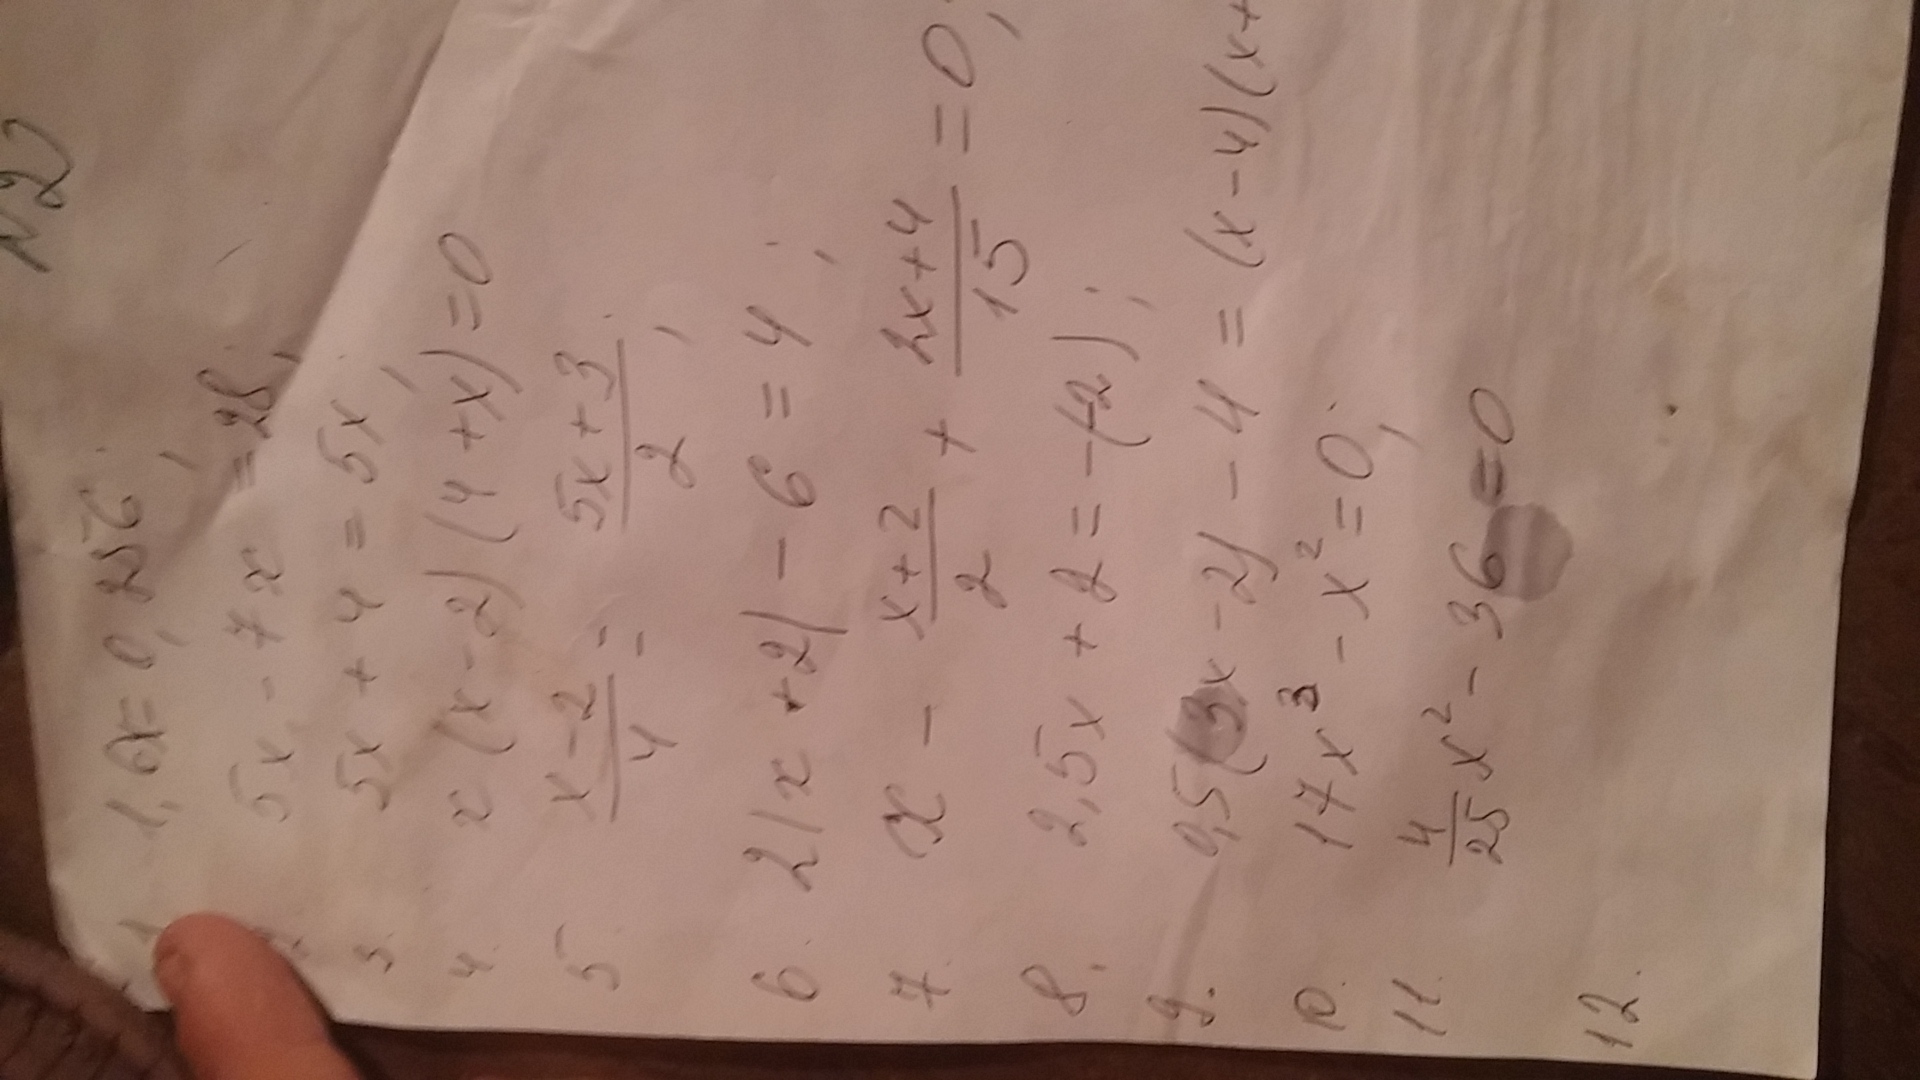 N2
1,6x = 0,256;
5x - 7x = 28;
3. 5x + 4 = 5x;
4. x(x-2)(4+x) = 0
5. \frac{x-2}{4} = \frac{5x+3}{2};
6. 2|x+2| - 6 = 4;
7. x - \frac{x+2}{2} + \frac{2x+4}{15} = 0;
8. 2,5x + 2 = -(-2);
9. 0,5(3x-2) - 4 = (x-4)(x+
10. 17x³ - x² = 0;
11. \frac{4}{25}x² - 36 = 0
12.